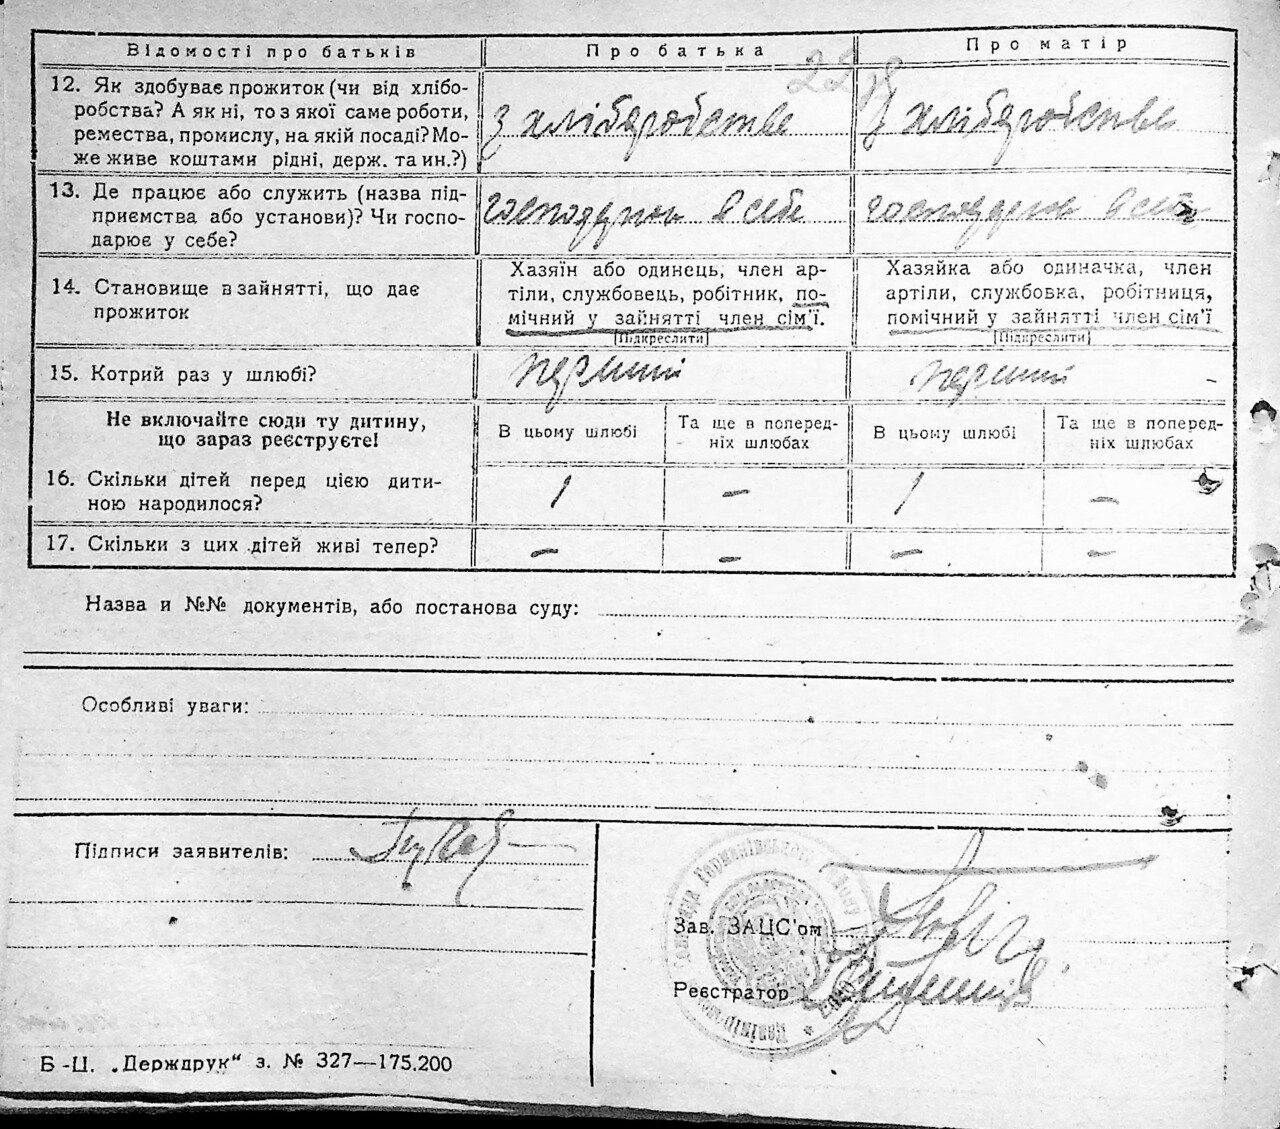 Відомості про батьків
Про батька
Про матір
12. Як здобуває прожиток (чи від хлібо-
робства? А як ні, то з якої саме роботи,
ремества, промислу, на якій посаді? Мо-
же живе коштами рідні, держ. та ин.?)
з хліборобства
з хліборобства
13. Де працює або служить (назва під-
приємства або установи)? Чи госпо-
дарює у себе?
в себе
в себе
14. Становище в зайнятті, що дає
прожиток
Хазяїн або одинець, член ар-
тіли, службовець, робітник, по-
мічний у зайнятті член сім'ї.
[Підкреслити]
Хазяйка або одиначка, член
артіли, службовка, робітниця,
помічний у зайнятті член сім'ї
[Підкреслити]
15. Котрий раз у шлюбі?
перший
перший
Не включайте сюди ту дитину,
що зараз реєструєте!
В цьому шлюбі
Та ще в поперед-
ніх шлюбах
В цьому шлюбі
Та ще в поперед-
ніх шлюбах
16. Скільки дітей перед цією дити-
ною народилося?
1
–
1
–
17. Скільки з цих дітей живі тепер?
–
–
–
–
Назва и №№ документів, або постанова суду:
Особливі уваги:
Підписи заявителів:
Зав. ЗАЦС'ом
Реєстратор
Б-Ц. „Держдрук“ з. № 327—175.200